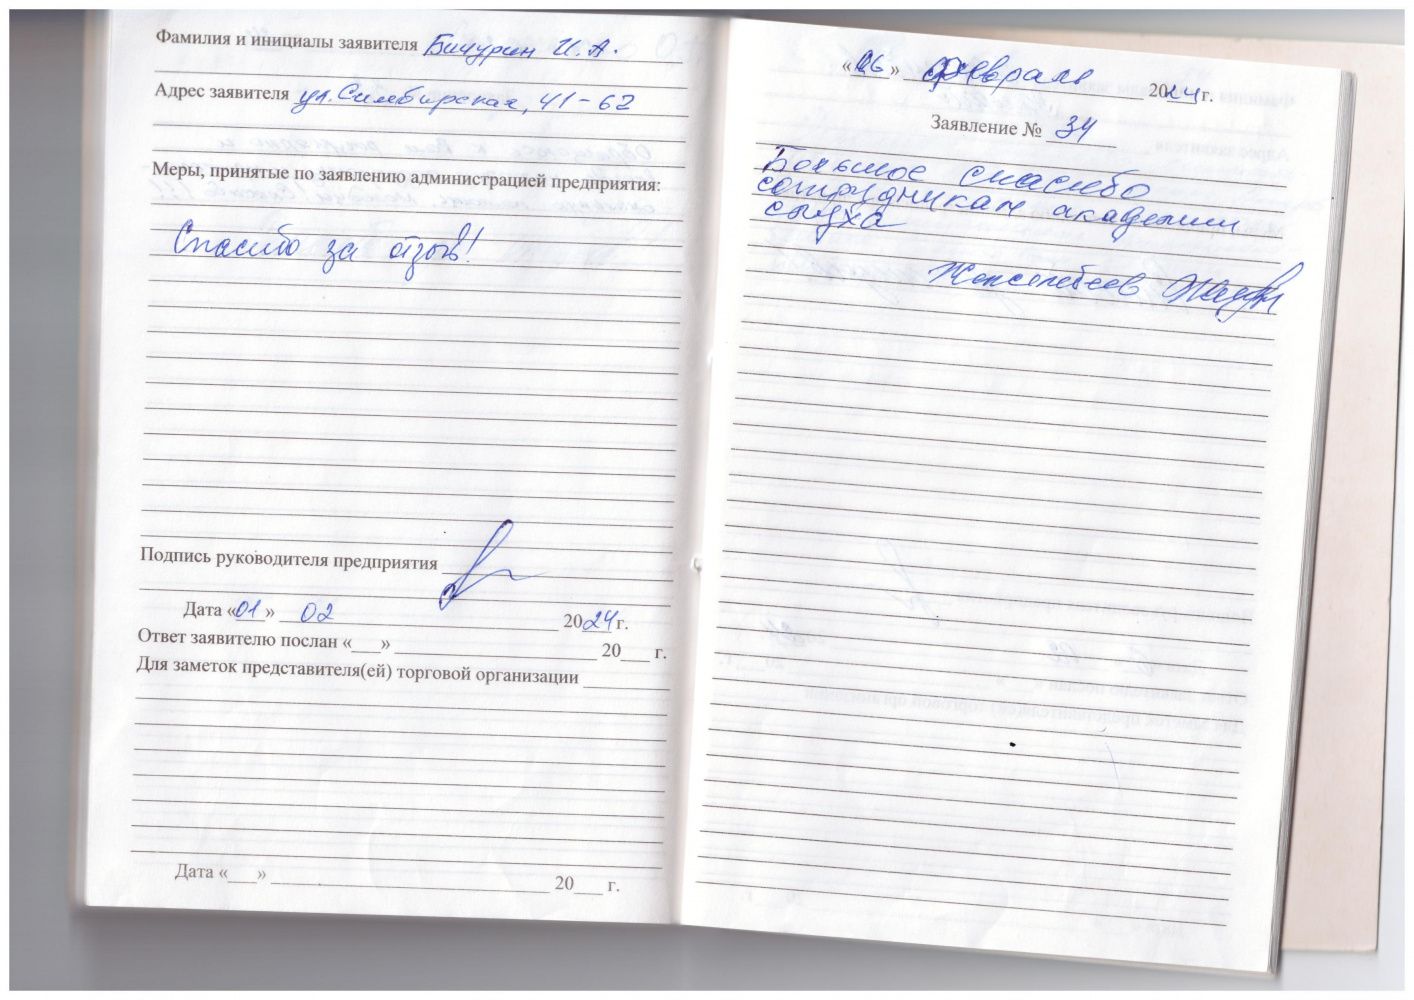 Фамилия и инициалы заявителя Бичурин И. А.
Адрес заявителя ул. Симбирская, 41-62
Меры, принятые по заявлению администрацией предприятия:
Спасибо за отзыв!
Подпись руководителя предприятия
Дата «01» 02 2024 г.
Ответ заявителю послан «___» 20___ г.
Для заметок представителя(ей) торговой организации
Дата «___» 20___ г.
«06» февраля 2024 г.
Заявление № 34
Большое спасибо
сотрудникам академии
слуха